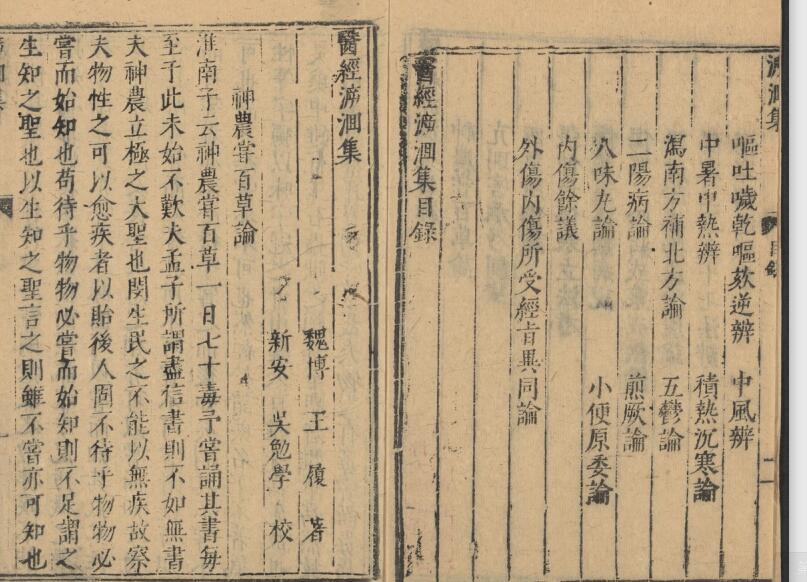 泝洄集
目錄
嘔吐噦乾嘔欬逆辨 中風辨
中暑中熱辨 積熱沉寒論
瀉南方補北方論 五鬱論
二陽病論 煎厥論
八味丸論 小便原委論
內傷餘議
外傷內傷所受經旨異同論
醫經泝洄集目錄
醫經泝洄集
魏博 王 履 著
新安 吳勉學 校
神農嘗百草論
淮南子云神農嘗百草一日七十毒予嘗誦其書每
至于此未始不歎夫孟子所謂盡信書則不如無書
夫神農立極之大聖也閔生民之不能以無疾故察
夫物性之可以愈疾者以貽後人固不待乎物物必
嘗而始知也苟待乎物物必嘗而始知則不足謂之
生知之聖也以生知之聖言之則雖不嘗亦可知也